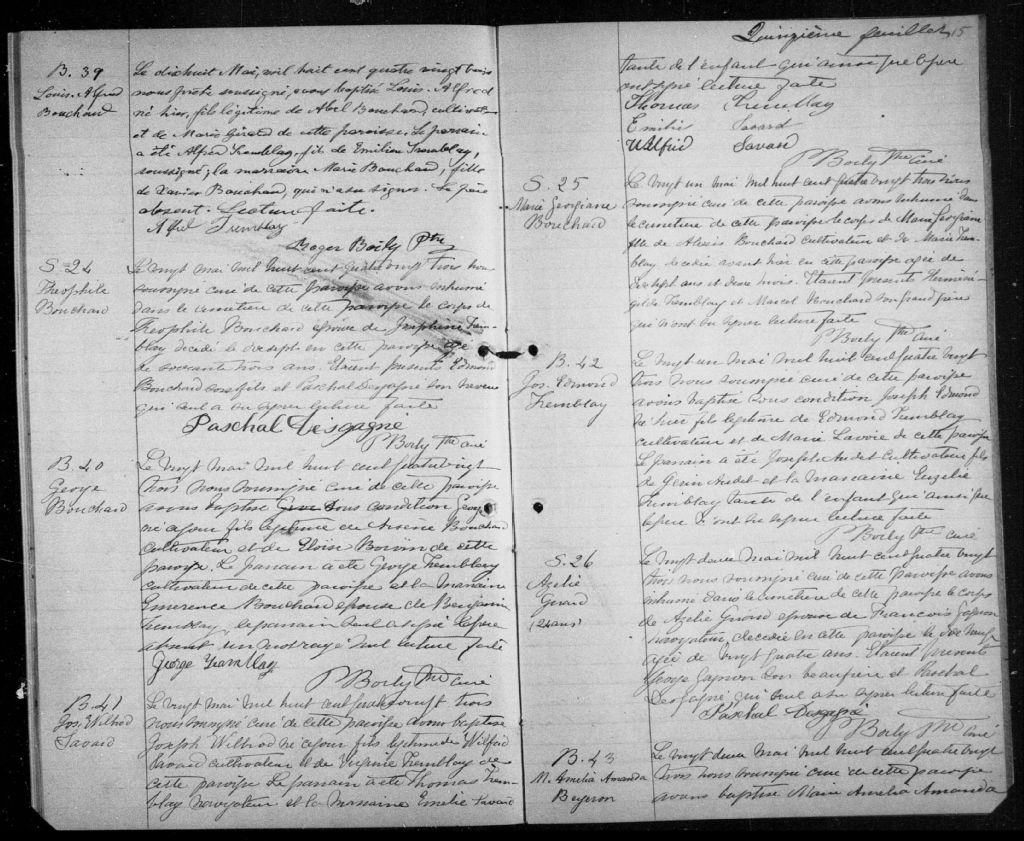 B. 39
Louis-Alfred
Bouchard
Le dixhuit Mai, mil huit cent quatre vingt trois
nous prêtre soussigné, avons baptisé Louis-Alfred
né hier, fils légitime de Abel Bouchard, cultivateur
et de Marie Girard de cette paroisse. Le parrain
a été Alfred Tremblay, fils de Emilien Tremblay,
soussigné; la marraine Marie Bouchard, fille
de Xavier Bouchard, qui n'a su signer. Le père
absent. Lecture faite.
Alfred Tremblay
Roger Boily Ptre
S. 24
Théophile
Bouchard
Le vingt mai mil huit cent quatre vingt trois nous
soussigné curé de cette paroisse avons inhumé
dans le cimetière de cette paroisse le corps de
Théophile Bouchard époux de Joséphine Trem-
blay décédé le dixsept en cette paroisse âgé
de soixante trois ans. Etaient présents Edmond
Bouchard son fils et Paschal Desgagné son neveu
qui seul a su signer lecture faite
Paschal Desgagne
P Boily Ptre curé
B. 40
George
Bouchard
Le vingt mai mil huit cent quatre vingt
trois nous soussigné curé de cette paroisse
avons baptisé sous condition George
né ce jour fils légitime de Arsène Bouchard
cultivateur et de Eloïse Boivin de cette
paroisse. Le parrain a été George Tremblay
cultivateur de cette paroisse et la marraine
Emerence Bouchard épouse de Benjamin
Tremblay, le parrain seul a signé le père
absent un mot rayé nul lecture faite
George Tramblay
P Boily Ptre curé
B. 41
Jos. Wilbrod
Savard
Le vingt mai mil huit cent quatre vingt trois
nous soussigné curé de cette paroisse avons baptisé
Joseph Wilbrod né ce jour fils légitime de Wilfrid
Savard cultivateur et de Virginie Tremblay de
cette paroisse Le parrain a été Thomas Trem-
blay navigateur et la marraine Emélie Savard
Quinzième feuillet 15
tante de l'enfant qui ainsi que le père
ont signé lecture faite
Thomas Tremblay
Emilie Savard
Wilfrid Savard
P Boily Ptre curé
S. 25
Marie Georgiane
Bouchard
Le vingt un mai mil huit cent quatre vingt trois nous
soussigné curé de cette paroisse avons inhumé dans
le cimetière de cette paroisse le corps de Marie Georgiane
fille de Alexis Bouchard cultivateur et de Marie Trem-
blay décédée avant hier en cette paroisse âgée de
dixsept ans et deux mois. Etaient présents Herméné-
gilde Tremblay et Marcel Bouchard son grand père
qui n'ont su signer lecture faite
P Boily Ptre curé
B. 42
Jos. Edmond
Tremblay
Le vingt un mai mil huit cent quatre vingt
trois nous soussigné curé de cette paroisse
avons baptisé sous condition Joseph Edmond
né hier fils légitime de Edmond Tremblay
cultivateur et de Marie Lavoie de cette paroisse
Le parrain a été Joseph Audet cultivateur fils
de Audet et la marraine
Tremblay tante de l'enfant qui ainsi que
le père n'ont su signer lecture faite
P Boily Ptre curé
S. 26
Azélie
Girard
(24 ans)
Le vingt deux mai mil huit cent quatre vingt
trois nous soussigné curé de cette paroisse avons
inhumé dans le cimetière de cette paroisse le corps
de Azélie Girard épouse de François Gagnon
navigateur décédée en cette paroisse le dix neuf
âgée de vingt quatre ans. Etaient présents
George Gagnon son beau père et Paschal
Desgagné, qui seul a su signer lecture faite
Paschal Desgagné
P Boily Ptre curé
B. 43
M. Amelia Amanda
Bergeron
Le vingt deux mai mil huit cent quatre vingt
trois nous soussigné curé de cette paroisse
avons baptisé Marie Amelia Amanda